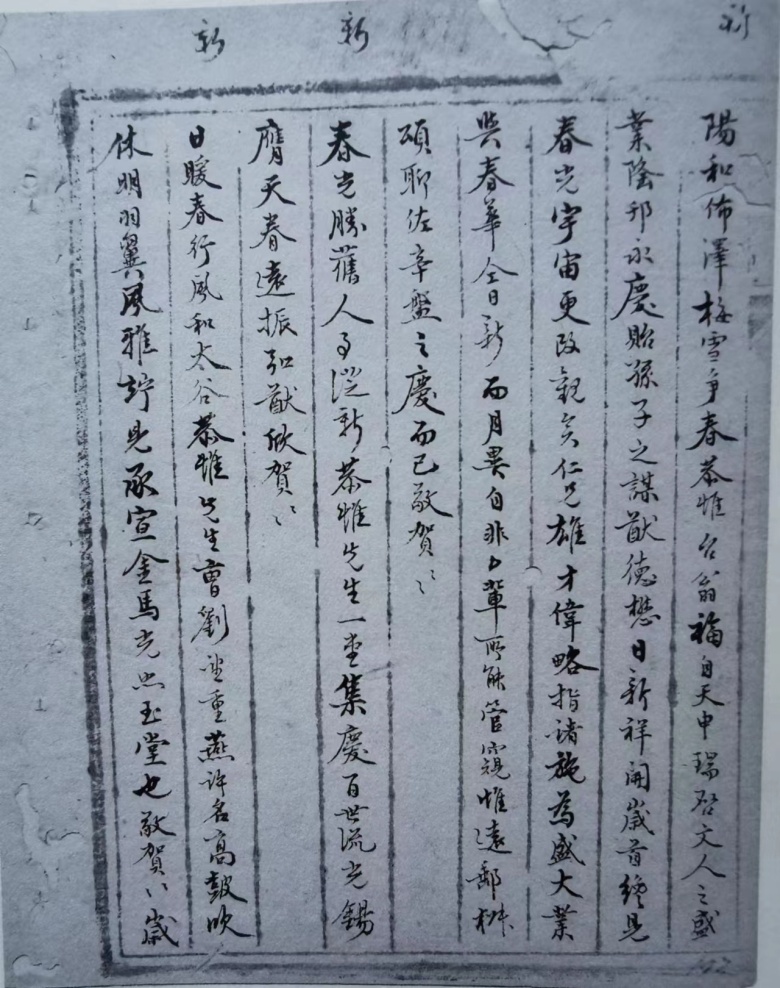 新
新
新
陽和佈澤梅雪爭春恭惟台翁福自天申瑞啓文人之盛
業隆邦永慶貽孫子之謀猷德懋日新祥開歲首纔見
春光宇宙更改觀矣仁兄雄才偉略指諸施為盛大業
與春華今日新而月異自非卜輩所能管窺惟遠鄙椒
頌聊佐辛盤之慶而已敬賀〻
春光勝舊人事從新恭惟先生一堂集慶百世流光錫
膺天眷遠振弘猷欣賀〻
日暖春行風和太谷恭惟先生曹劉望重燕許名高皷吹
休明羽翼風雅竚見承宣金馬光照玉堂也敬賀〻歲